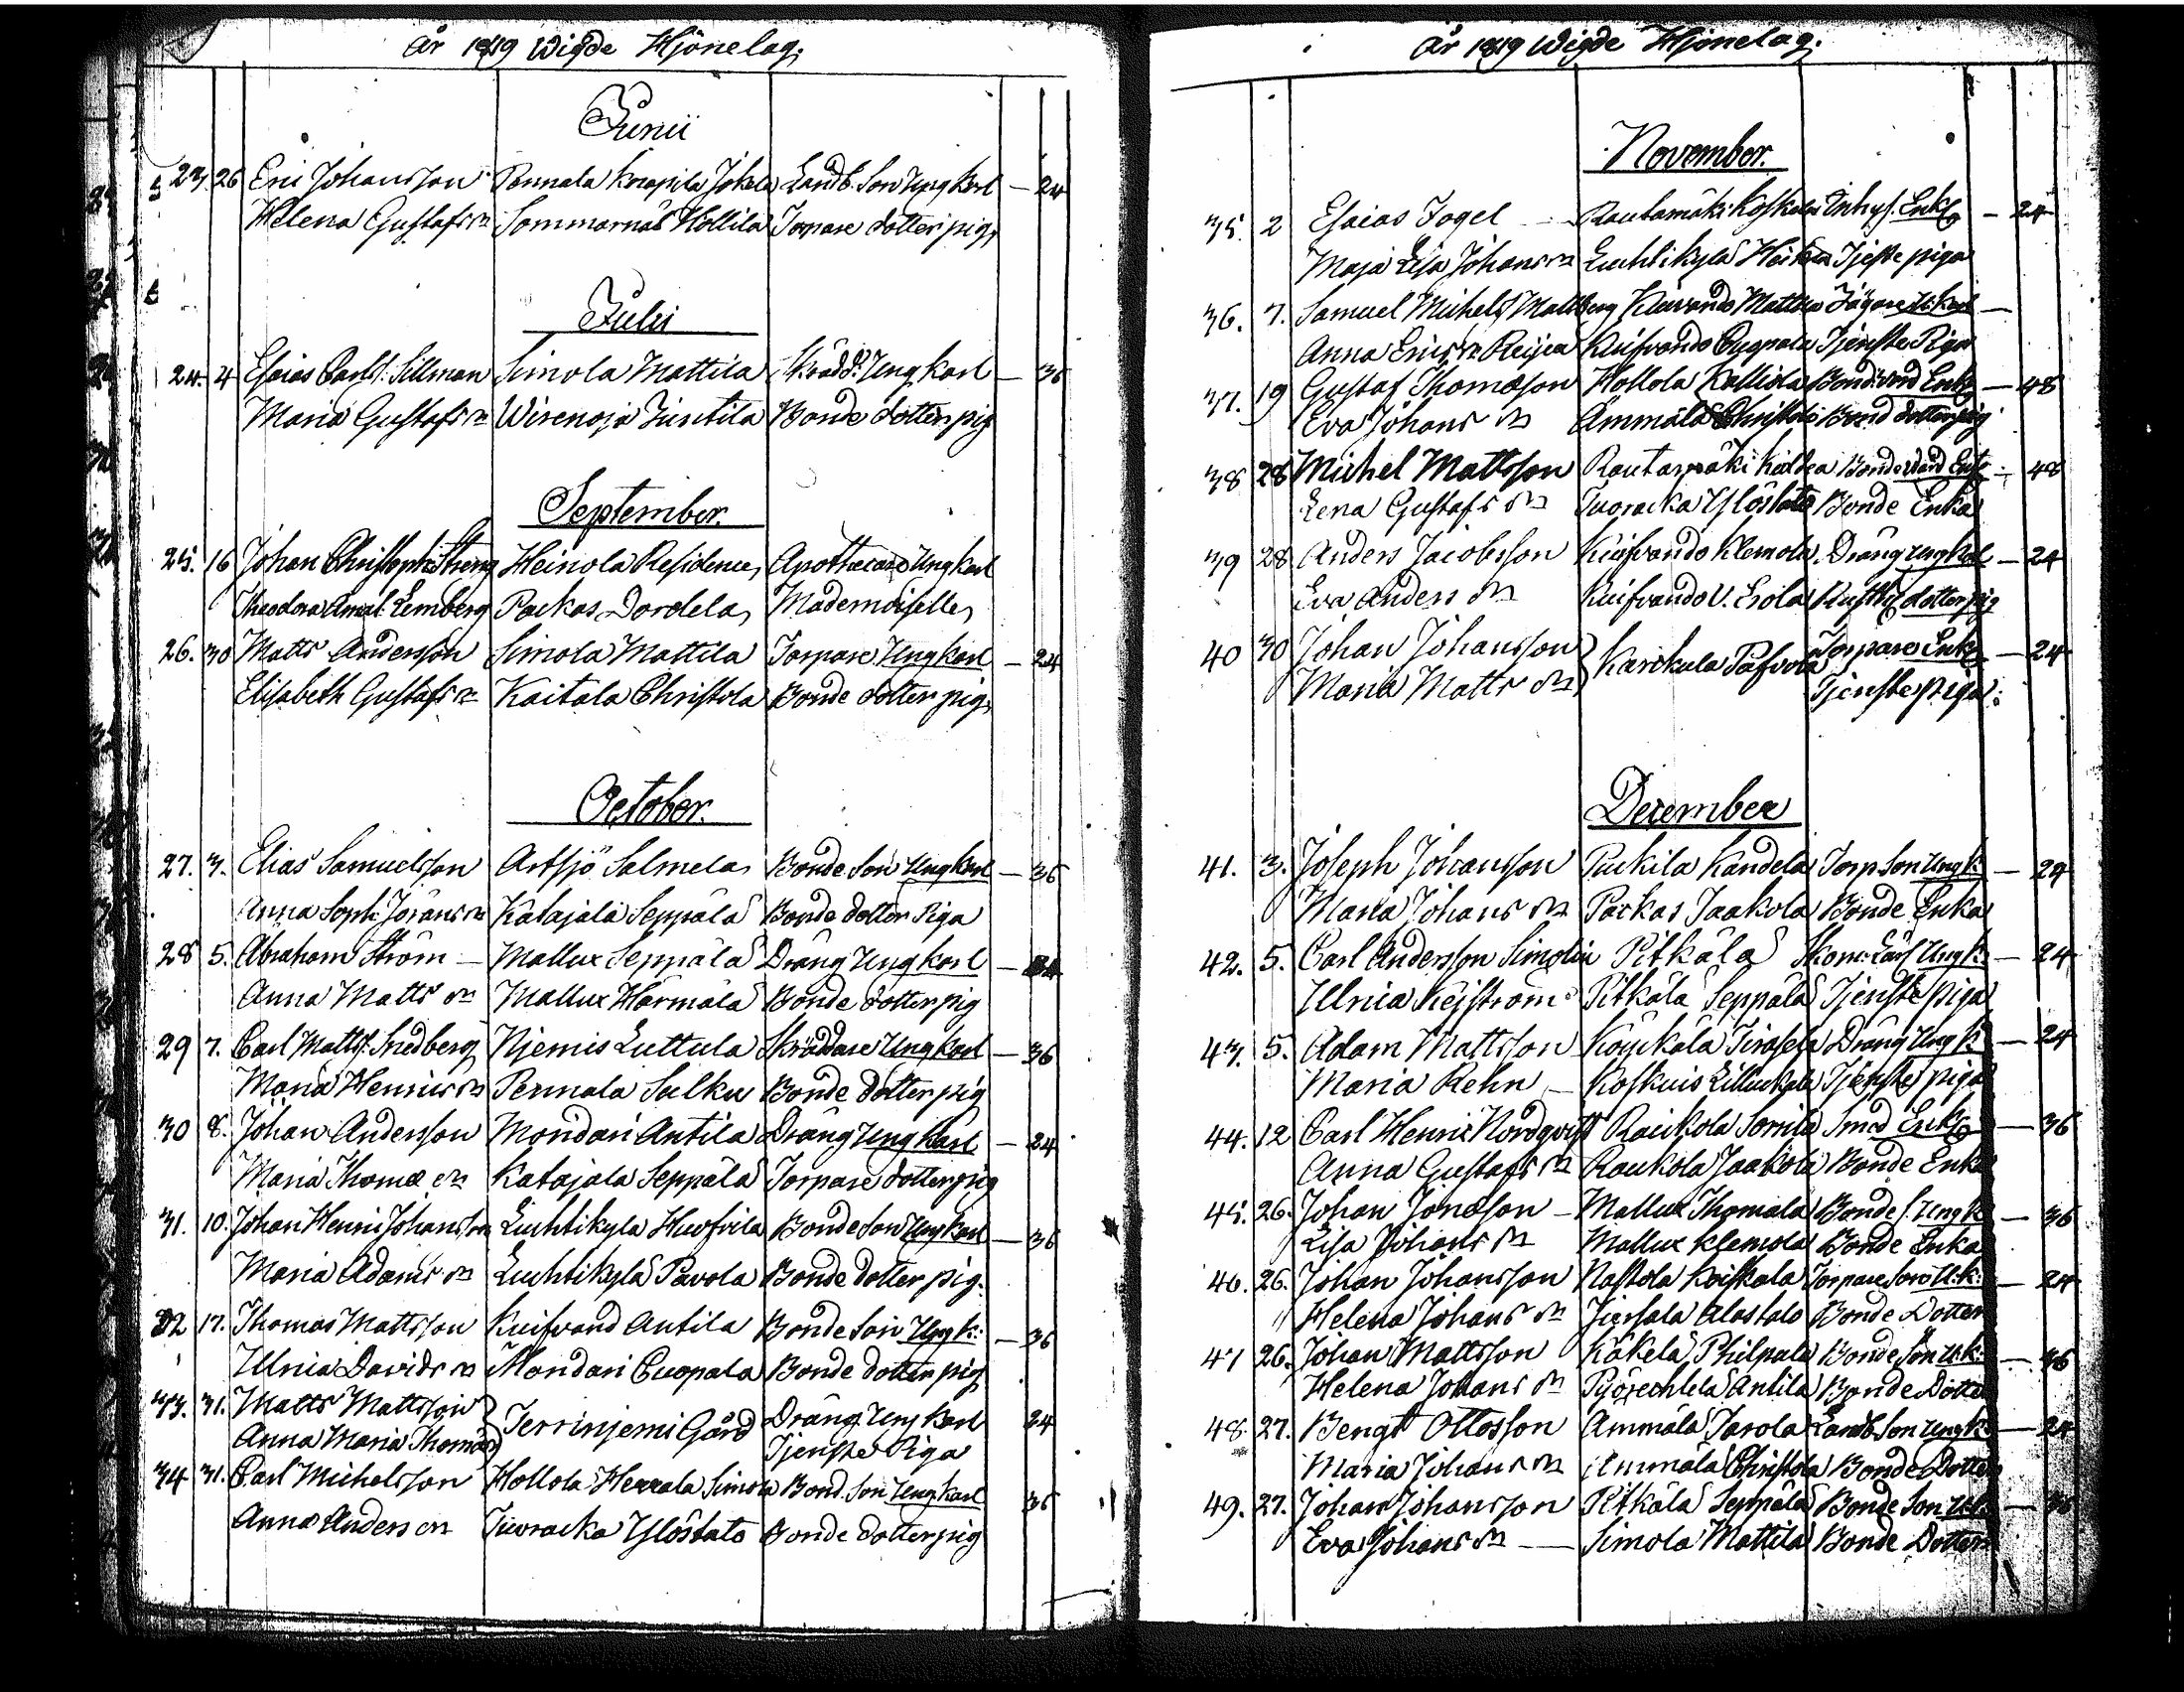 År 1819 Wigde Hjonelag.
Junii
23. 26 Eric Johansson Pennala Knapila Jokela Landb. Son Ung Karl — 24
Helena Gustafsdr Sommarnäs Hollila Torpare dotter pig.
Julii
24. 4 Esaias Carlss. Sillman Simola Mattila Skrädd. Ung Karl — 36
Maria Gustafsdr Wirenoja Juntila Bonde dotter pig
September.
25. 16 Johan Christoph Streng Heinola Residence Apothecare Ung Karl
Theodora Amal. Lemberg Packas Dordela Mademoiselle
26. 30 Matts Andersson Simola Mattila Torpare Ung Karl — 24
Elisabeth Gustafsdr Kaitala Christola Bonde dotter pig.
October.
27. 3. Elias Samuelsson Artsjö Salmela Bonde Son Ung Karl — 36
Anna Soph. Jöransdr Katajala Seppälä Bonde dotter Piga
28 5. Abraham Ström — Mallux Seppälä Dräng Ung Karl — 24
Anna Mattsdr Mallux Härmälä Bonde dotter pig
29 7. Carl Matts. Snedberg Njemis Luttula Skräddare Ung Karl — 36
Maria Henricsdr Pennala Sulku Bonde dotter pig
30 8. Johan Andersson Mondari Antila Dräng Ung Karl — 24
Maria Thomædr Katajala Seppälä Torpare dotter pig
31. 10. Johan Henric Johansson Luhtikylä Huofvila Bonde Son Ung Karl — 36
Maria Adamsdr Luhtikylä Pavola Bonde dotter pig.
32 17. Thomas Mattsson Kuifvand Antila Bonde Son Ung K: — 36
Ulrica Davidsdr Mondari Cuopala Bonde dotter pig
33. 31. Matts Mattsson Terrinjemi Gård Dräng Ung Karl 24
Anna Maria Thomædr Tjenste Piga
34 31. Carl Michelsson Hollola Herrala Simola Bond. Son Ung Karl 36
Anna Andersdr Tuoracka Ylöstalo Bonde dotter pig
År 1819 Wigde Hjonelag.
November.
35. 2 Esaias Fogel — Rautamäki Koskela Inhys. Enkl. — 24
Maja Lisa Johansdr Luhtikylä Tjenste piga
36. 7. Samuel Michelss. Mattberg Kuivando Mattila Jägare U: Karl —
Anna Ericsdr Kuifvando Cuopala Tjenste Piga
37. 19 Gustaf Thomæson Hollola Kalliola Bonde Enkl. — 48
Eva Johansdr Ammälä Christola Bond dotter pig
38 28 Michel Mattsson Rautamäki Bonde Enkl. — 48
Lena Gustafsdr Tuoracka Ylöstalo Bonde Enka
39 28 Anders Jacobsson Kuifvando Klemola Dräng Ung Karl — 24
Eva Andersdr Kuifvando U. Erola Rusth. dotter pig
40 30 Johan Johansson Karckula Pafvola Torpare Enkl. — 24
Maria Mattsdr Tjenste piga.
December
41. 3. Joseph Johansson Puckila Kandela Torp. Son Ung K: — 24
Maria Johansdr Packas Jaakola Bonde Enka
42. 5. Carl Andersson Simolin Pitkälä Skom: Lärl. Ung K: — 24
Ulrica Kejström Pitkälä Seppälä Tjenste piga
43. 5. Adam Mattsson Köyckälä Dräng Ung K — 24
Maria Rehn — Koskuis Lilluckala Tjenste piga
44. 12 Carl Henric Nordqvist Raukola Sorrila Smed Enkl. — 36
Anna Gustafsdr Raukola Jaakola Bonde Enka
45. 26. Johan Jonæson — Mallux Thomala Bonde S. Ung K — 36
Lisa Johansdr Mallux Klemola Bonde Enka
46. 26. Johan Johansson Nastola Koiskala Torpare Son U: K: — 24
Helena Johansdr Alastalo Bonde Dotter
47 26. Johan Mattsson Käkelä Philpula Bonde Son U: K: — 36
Helena Johansdr Antila Bonde Dotter
48. 27. Bengt Ottosson Ammälä Tarola Landb. Son Ung K: — 24
Maria Johansdr Ammälä Christola Bonde Dotter
49. 27. Johan Johansson Pitkälä Seppälä Bonde Son U: K: — 36
Eva Johansdr — Simola Mattila Bonde Dotter